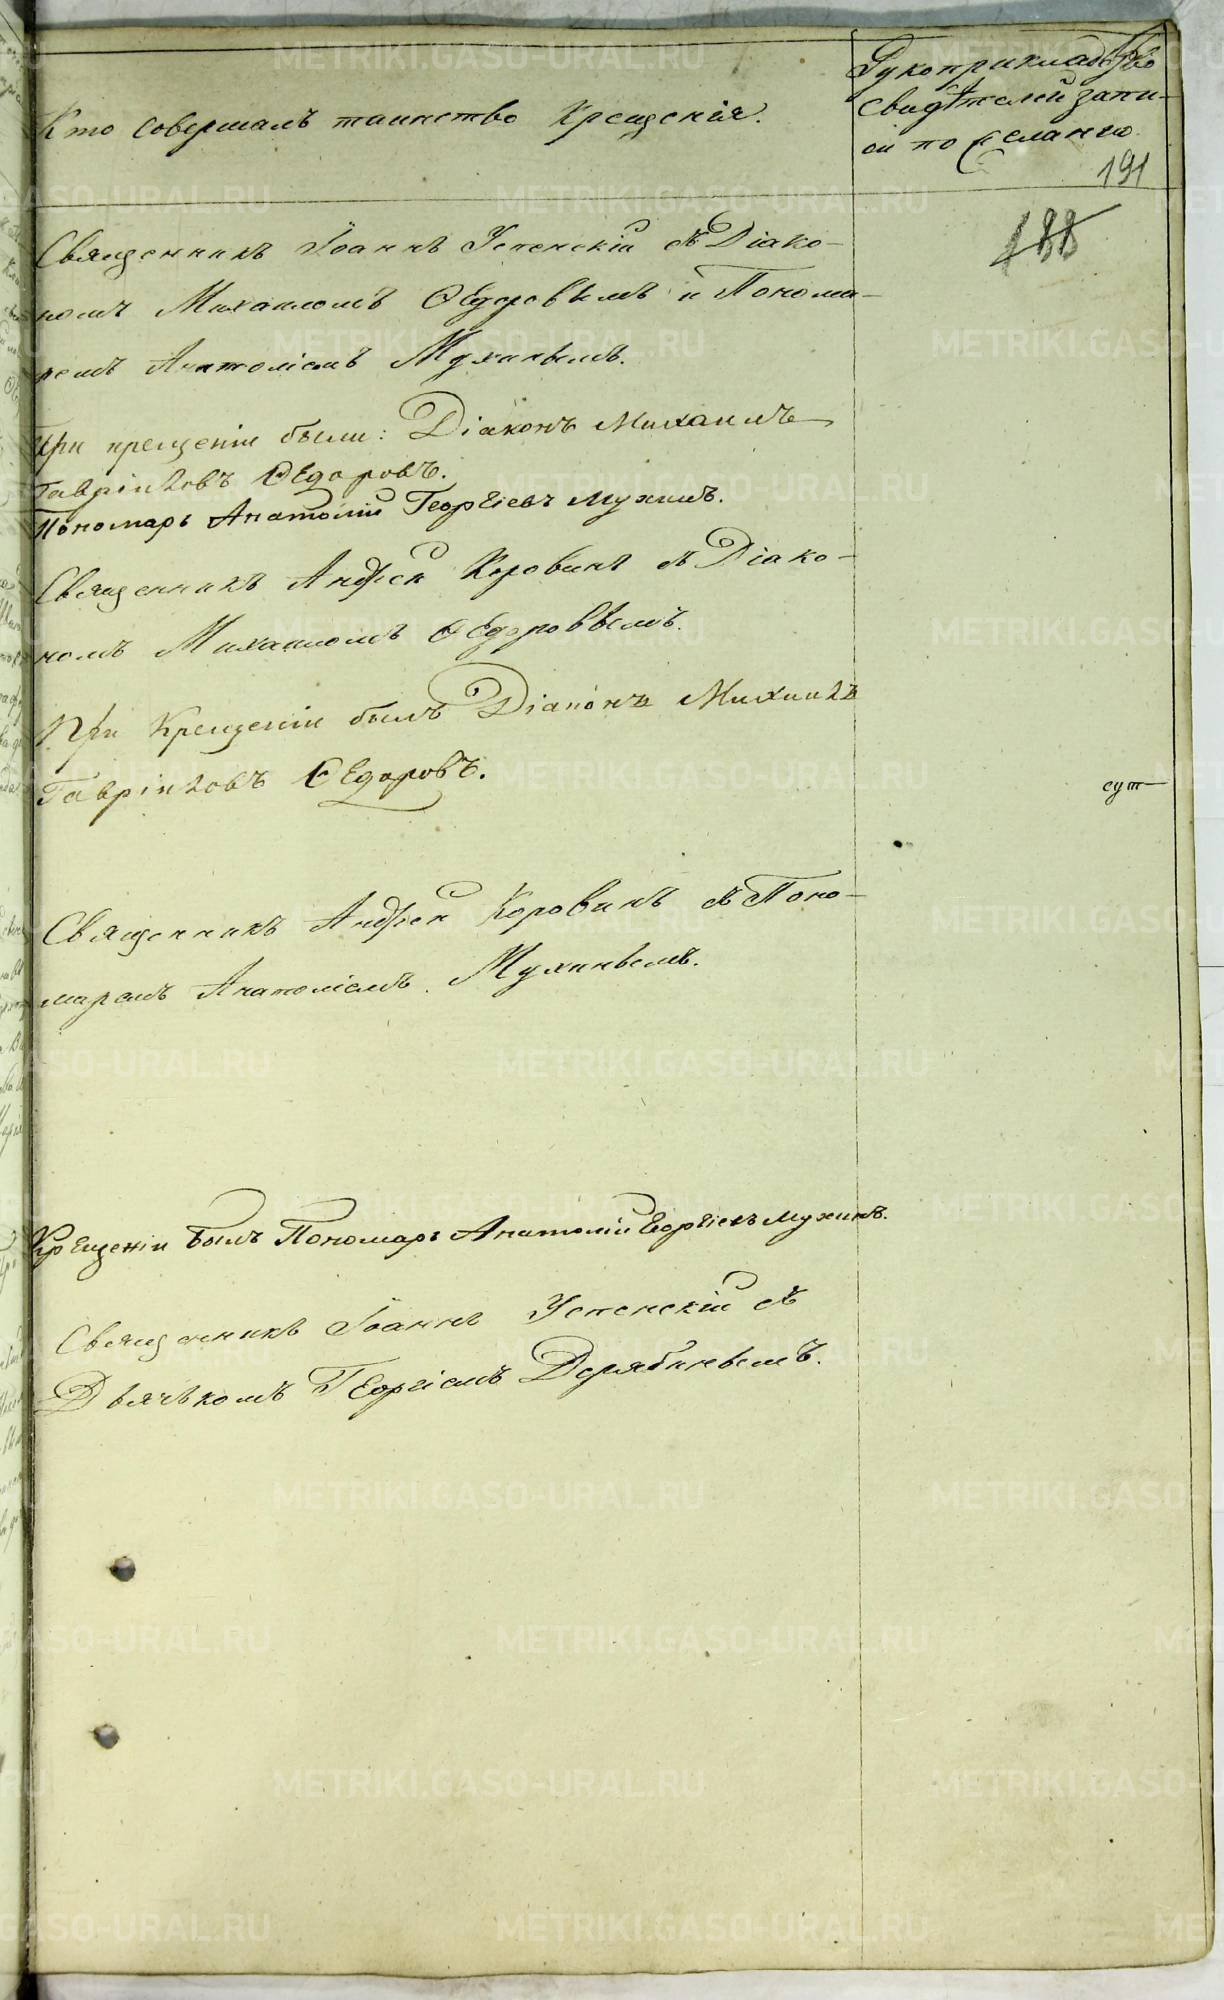 Кто совершалъ таинство Крещенія.
Рукоприкладство
свидѣтелей запи-
си по желанію.
191
188
Священникъ Іоаннъ Успенскій съ Діако-
номъ Михаиломъ Ѳедоровымъ и Понома-
ремъ Анатоліемъ Мухинымъ.
При крещеніи были: Діаконъ Михаилъ
Гавріиловъ Ѳедоровъ.
Пономарь Анатолій Георгіевъ Мухинъ.
Священникъ Андрей Коровинъ съ Діако-
номъ Михаиломъ Ѳедоровымъ.
При Крещеніи былъ Діаконъ Михаилъ
Гавріиловъ Ѳедоровъ.
сут
Священникъ Андрей Коровинъ съ Поно-
маремъ Анатоліемъ Мухинымъ.
Крещеніи былъ Пономарь Анатолій Георгіевъ Мухинъ.
Священникъ Іоаннъ Успенскій съ
Дьячькомъ Георгіемъ Дерябинымъ.
METRIKI.GASO-URAL.RU